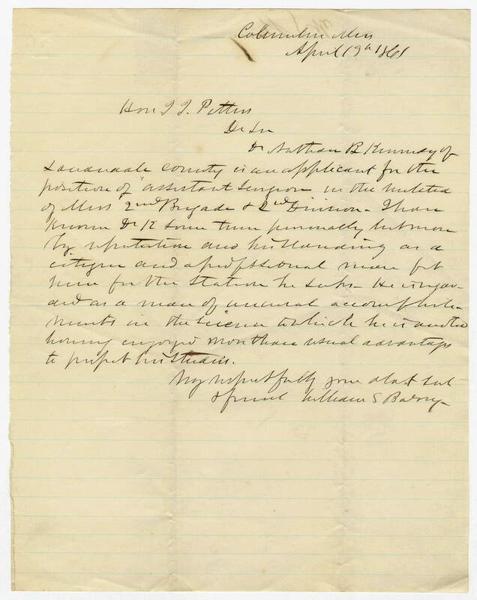 Columbus Miss
April 19th 1861
Hon J J Pettus
Dr Sir
Dr Nathan B Kennedy of
Lauderdale County is an applicant for the
position of assistant Surgeon in the
of Miss 2nd Brigade & 2nd Division. I have
known Dr K some time personally but more
by reputation and his standing as a
citizen and a professional man fit
him for the station he seeks He is regar
ded as a man of unusual accomplish
ments in the science to which he is
having enjoyed more than usual advantages
to perfect his studies.
Very respectfully your obdt
& friend William S Barry